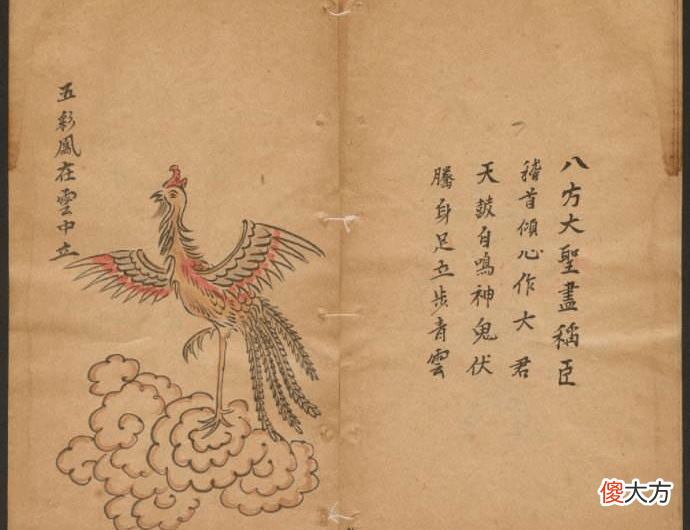 八方大聖盡稱臣
稽首傾心作大君
天鼓自鳴神鬼伏
騰身足立步青雲
五彩鳳在雲中立
傻大方